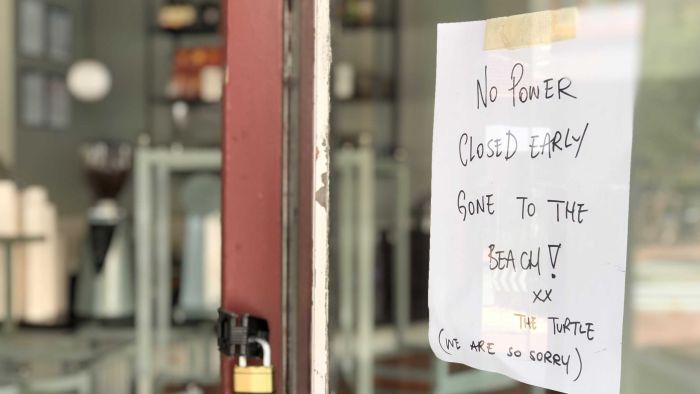 No PoWER
CLOSED EARLY
GONE TO THE
BEACH!
xx
THE TURTLE
(WE ARE SO SORRY)